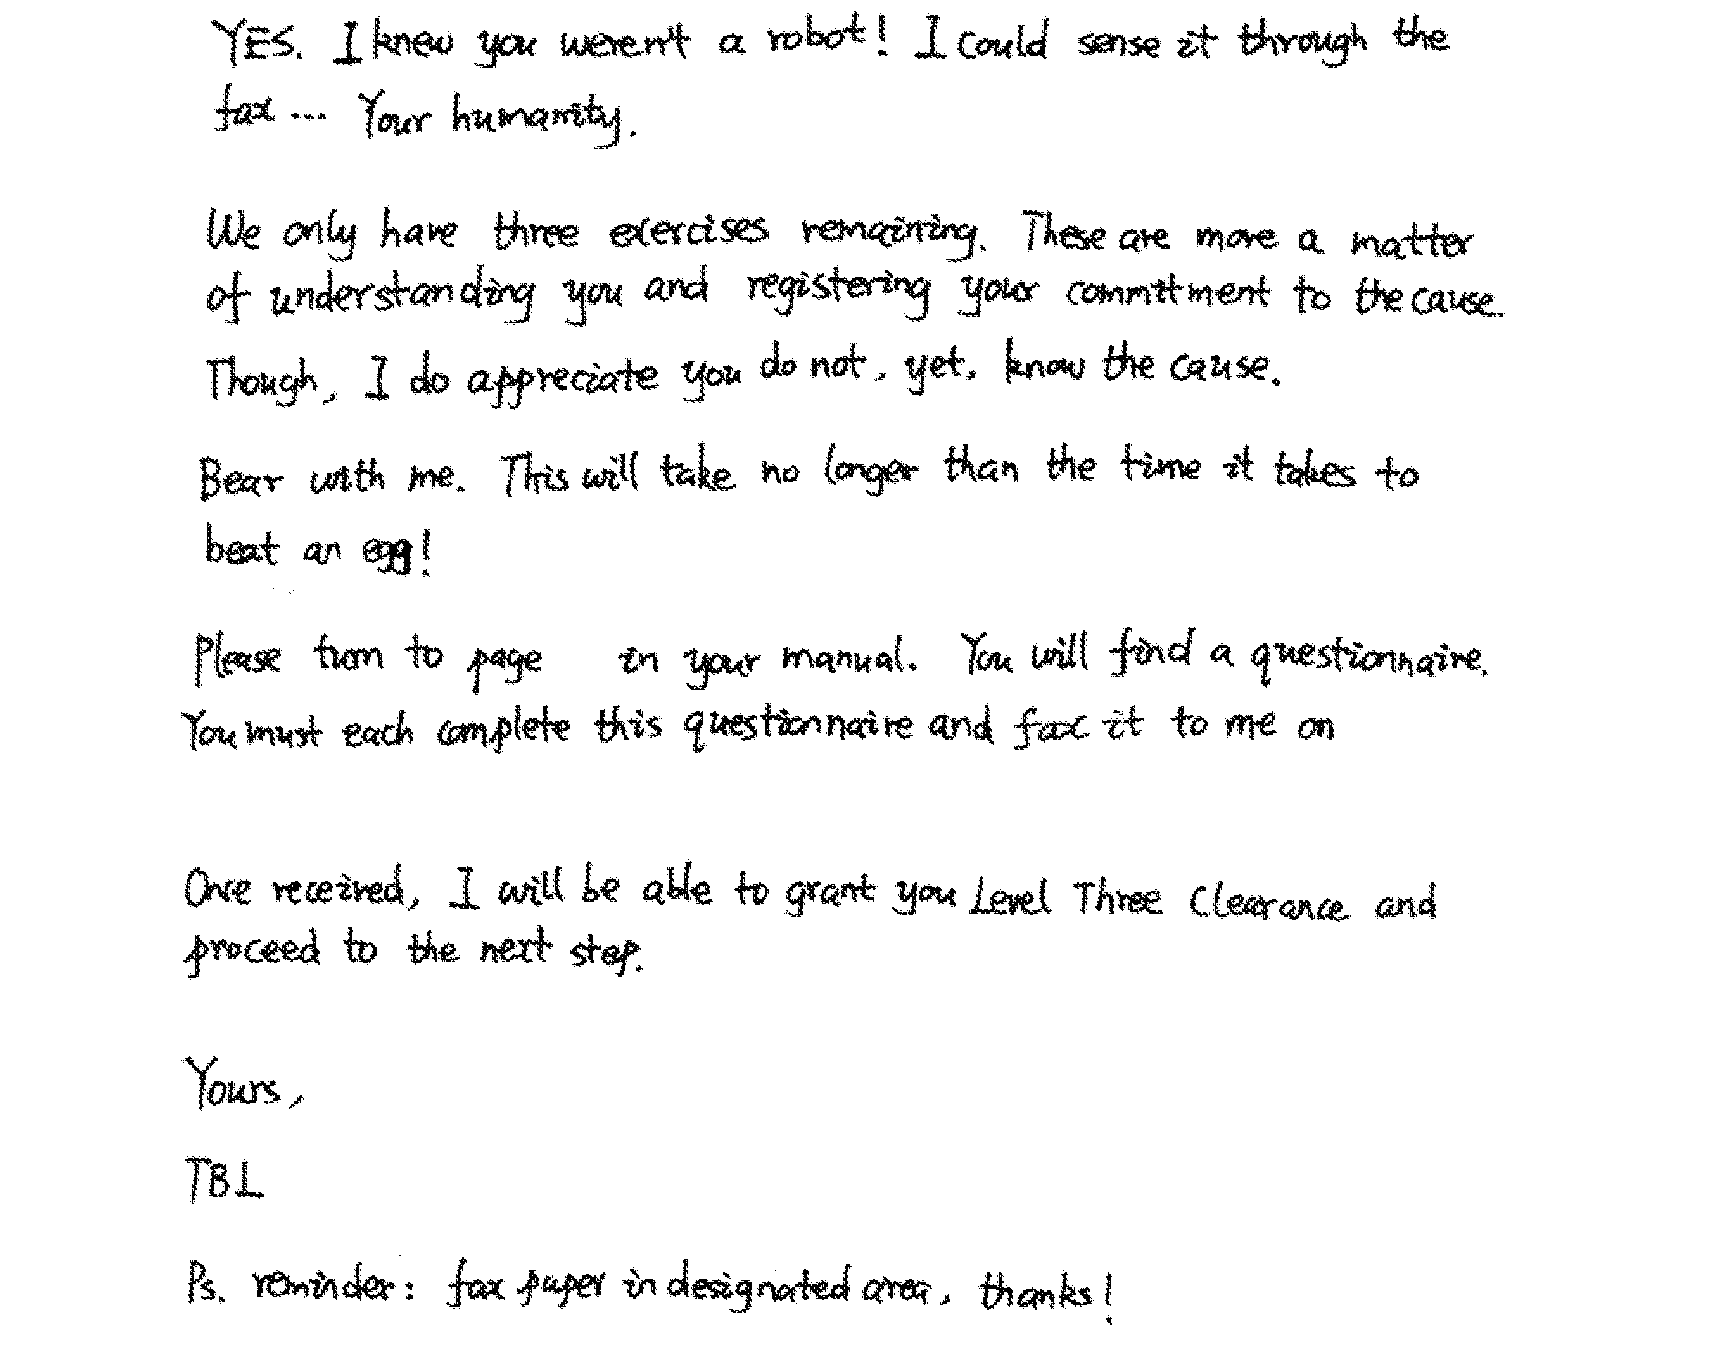 YES. I knew you weren't a robot! I could sense it through the
fax... Your humanity.
We only have three exercises remaining. These are more a matter
of understanding you and registering your commitment to the cause.
Though, I do appreciate you do not, yet, know the cause.
Bear with me. This will take no longer than the time it takes to
beat an egg!
Please turn to page in your manual. You will find a questionnaire.
You must each complete this questionnaire and fax it to me on
Once received, I will be able to grant you Level Three Clearance and
proceed to the next step.
Yours,
TBL
Ps. reminder: fax paper in designated area, thanks!